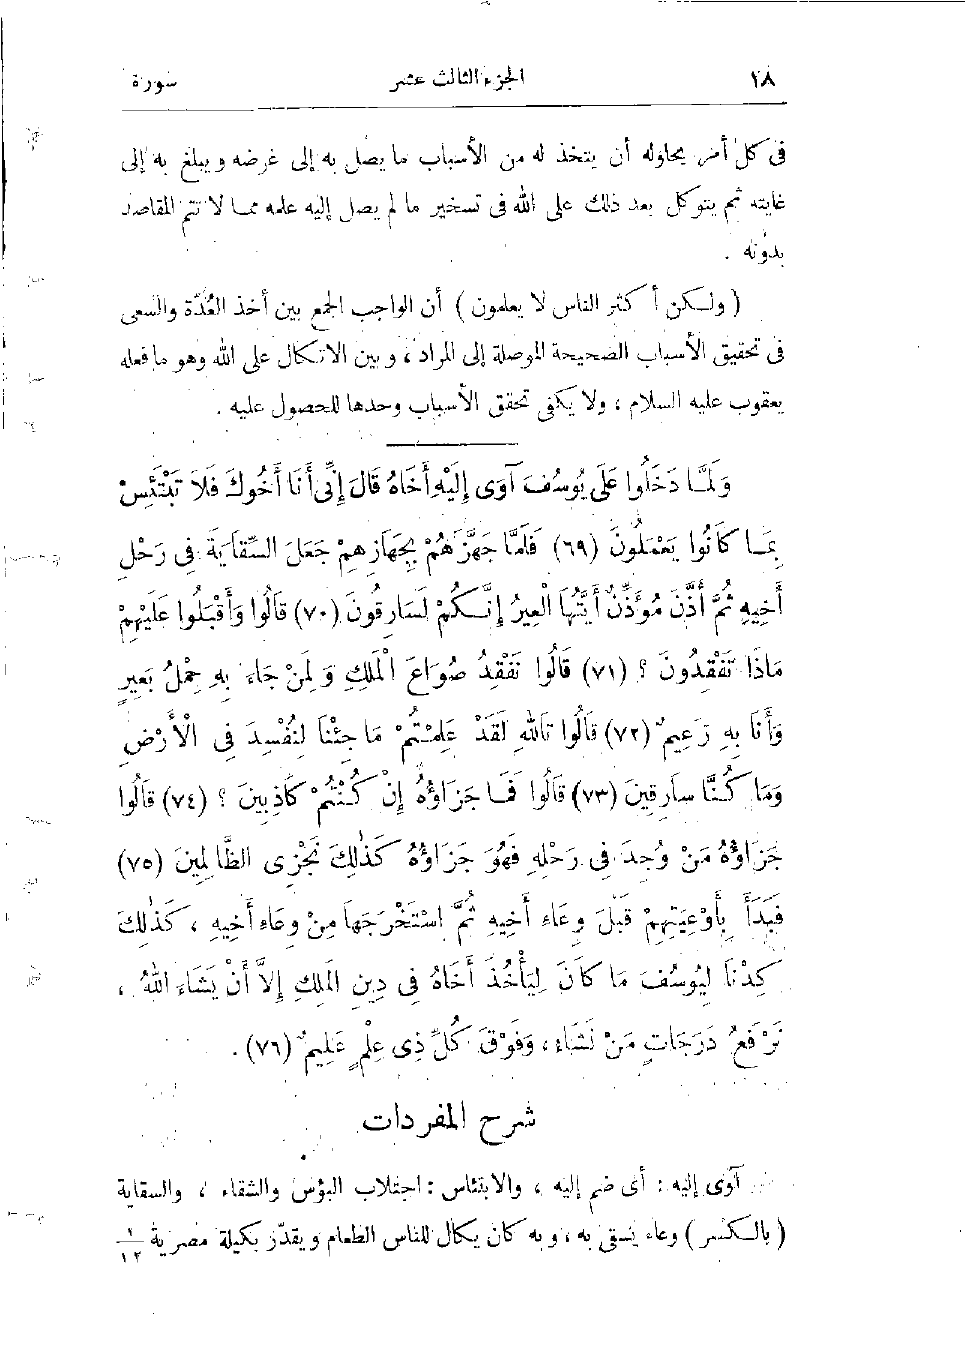 ٢٨ الجزء الثالث عشر سورة
فى كل أمر يحاوله أن يتخذ له من الأسباب ما يصل به إلى غرضه ويبلغ به إلى
غايته ثم يتوكل بعد ذلك على الله فى تسخير ما لم يصل إليه علمه مما لا تتم المقاصد
بدونه .
( ولكن أكثر الناس لا يعلمون ) أن الواجب الجمع بين أخذ العُدّة والسعى
فى تحقيق الأسباب الصحيحة الموصلة إلى المراد ، وبين الاتكال على الله وهو ما فعله
يعقوب عليه السلام ، ولا يكفى تحقق الأسباب وحدها للحصول عليه .
وَلَمَّا دَخَلُوا عَلَى يُوسُفَ آوَى إِلَيْهِ أَخَاهُ قَالَ إِنِّى أَنَا أَخُوكَ فَلاَ تَبْتَئِسْ
بِمَا كَانُوا يَعْمَلُونَ (٦٩) فَلَمَّا جَهَّزَهُمْ بِجَهَازِهِمْ جَعَلَ السِّقَايَةَ فِى رَحْلِ
أَخِيهِ ثُمَّ أَذَّنَ مُؤَذِّنٌ أَيَّتُهَا الْعِيرُ إِنَّكُمْ لَسَارِقُونَ (٧٠) قَالُوا وَأَقْبَلُوا عَلَيْهِمْ
مَاذَا تَفْقِدُونَ ؟ (٧١) قَالُوا نَفْقِدُ صُوَاعَ الْمَلِكِ وَلِمَنْ جَاءَ بِهِ حِمْلُ بَعِيرٍ
وَأَنَا بِهِ زَعِيمٌ (٧٢) قَالُوا تَاللهِ لَقَدْ عَلِمْتُمْ مَا جِئْنَا لِنُفْسِدَ فِى الْأَرْضِ
وَمَا كُنَّا سارِقِينَ (٧٣) قَالُوا فَمَا جَزَاؤُهُ إِنْ كُنْتُمْ كَاذِبِينَ ؟ (٧٤) قَالُوا
جَزَاؤُهُ مَنْ وُجِدَ فِى رَحْلِهِ فَهُوَ جَزَاؤُهُ كَذَلِكَ نَجْزِى الظَّالِمِينَ (٧٥)
فَبَدَأَ بِأَوْعِيَتِهِمْ قَبْلَ وِعَاءِ أَخِيهِ ثُمَّ اسْتَخْرَجَهَا مِنْ وِعَاءِ أَخِيهِ ، كَذَلِكَ
كِدْنَا لِيُوسُفَ مَا كَانَ لِيَأْخُذَ أَخَاهُ فِى دِينِ الْمَلِكِ إِلاَّ أَنْ يَشَاءَ اللهُ ،
نَرْفَعُ دَرَجَاتٍ مَنْ نَشَاءُ ، وَفَوْقَ كُلِّ ذِى عِلْمٍ عَلِيمٌ (٧٦) .
شرح المفردات
آوى إليه : أى ضم إليه ، والابتئاس : اجتلاب البؤس والشقاء ، والسقاية
( بالكسر ) وعاء يسقى به ، وبه كان يكال للناس الطعام ويقدّر بكيلة مصرية ١/١٢